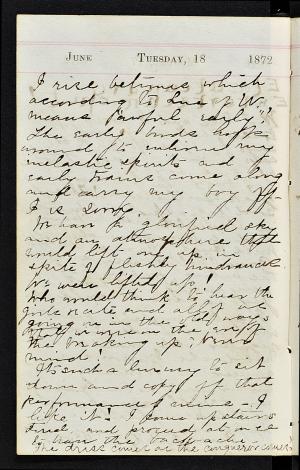 June Tuesday, 18 1872
I rise betimes which
according to Sue of W.
means "awful early."
The early birds hop
around to enliven my
inelastic spirits and
early trains come along
and carry my boy off.
I is sorry.
We have a glorified sky
and an atmosphere that
would lift one up in
spite of fleshly hindrances
We were lifted up.
Who would think to hear the
girls and all
going on in the old ways
the waking up?
mind!
It's such a luxury to sit
down and copy off that
performance of mine - I
like it! I come up stairs
tired, and proceed at once
to have the back-ache.
The dress comes or the conqueror comes